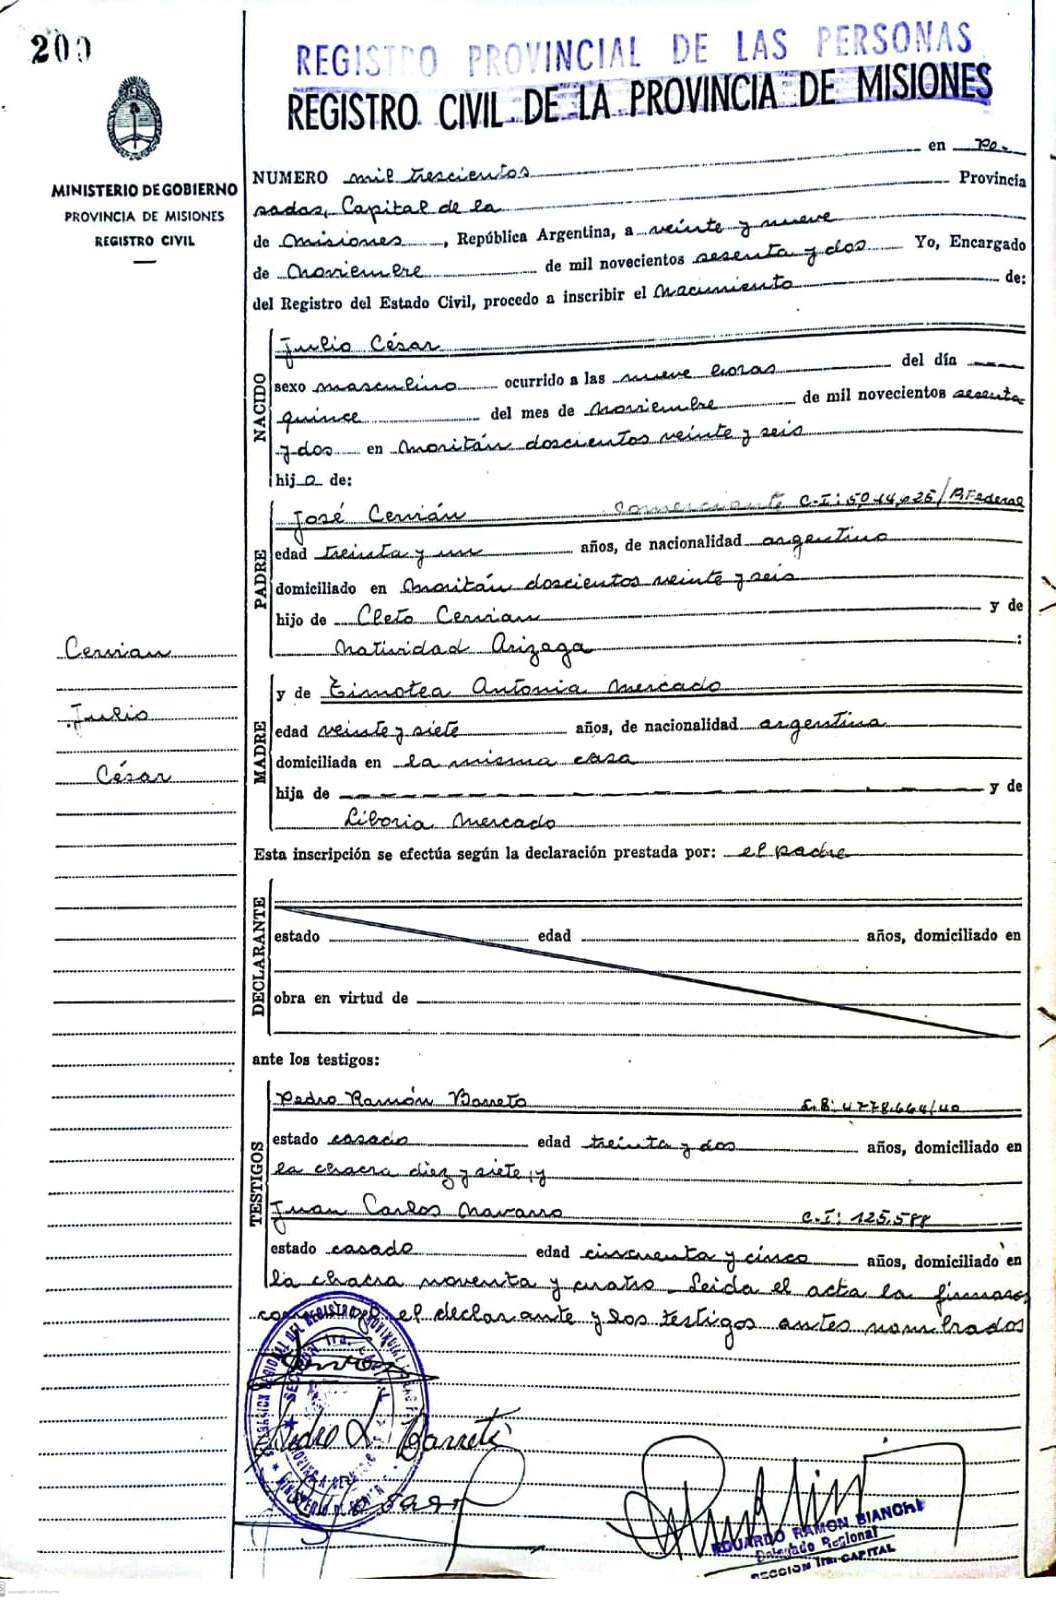 200
REGISTRO PROVINCIAL DE LAS PERSONAS
REGISTRO CIVIL DE LA PROVINCIA DE MISIONES
MINISTERIO DE GOBIERNO
PROVINCIA DE MISIONES
REGISTRO CIVIL
NUMERO mil trescientos en Po-
sadas, Capital de la Provincia
de Misiones, República Argentina, a veinte y nueve
de Noviembre de mil novecientos sesenta y dos Yo, Encargado
del Registro del Estado Civil, procedo a inscribir el Nacimiento de:
NACIDO
Julio César
sexo masculino ocurrido a las nueve horas del día
quince del mes de Noviembre de mil novecientos sesenta
y dos en Moritán doscientos veinte y seis
hijo de:
PADRE
José Cervián comerciante C.I: /P.Federal
edad treinta y un años, de nacionalidad argentino
domiciliado en Moritán doscientos veinte y seis
hijo de Cleto Cervian y de
Natividad Arizaga :
Cervian
Julio
César
MADRE
y de Timotea Antonia Mercado
edad veinte y siete años, de nacionalidad argentina
domiciliada en la misma casa
hija de y de
Liboria Mercado
Esta inscripción se efectúa según la declaración prestada por: el padre
DECLARANTE
estado edad años, domiciliado en
obra en virtud de
ante los testigos:
TESTIGOS
Pedro Ramón Barreto 4.778.664/40
estado casado edad treinta y dos años, domiciliado en
la chacra diez y siete; y
Juan Carlos Navarro C.I: 125.588
estado casado edad cincuenta y cinco años, domiciliado en
la chacra noventa y cuatro. Leida el acta la firman
el declarante y los testigos antes nombrados
Pedro R. Barreto
EDUARDO RAMON BIANCHI
Delegado Regional
SECCION 1ra. CAPITAL